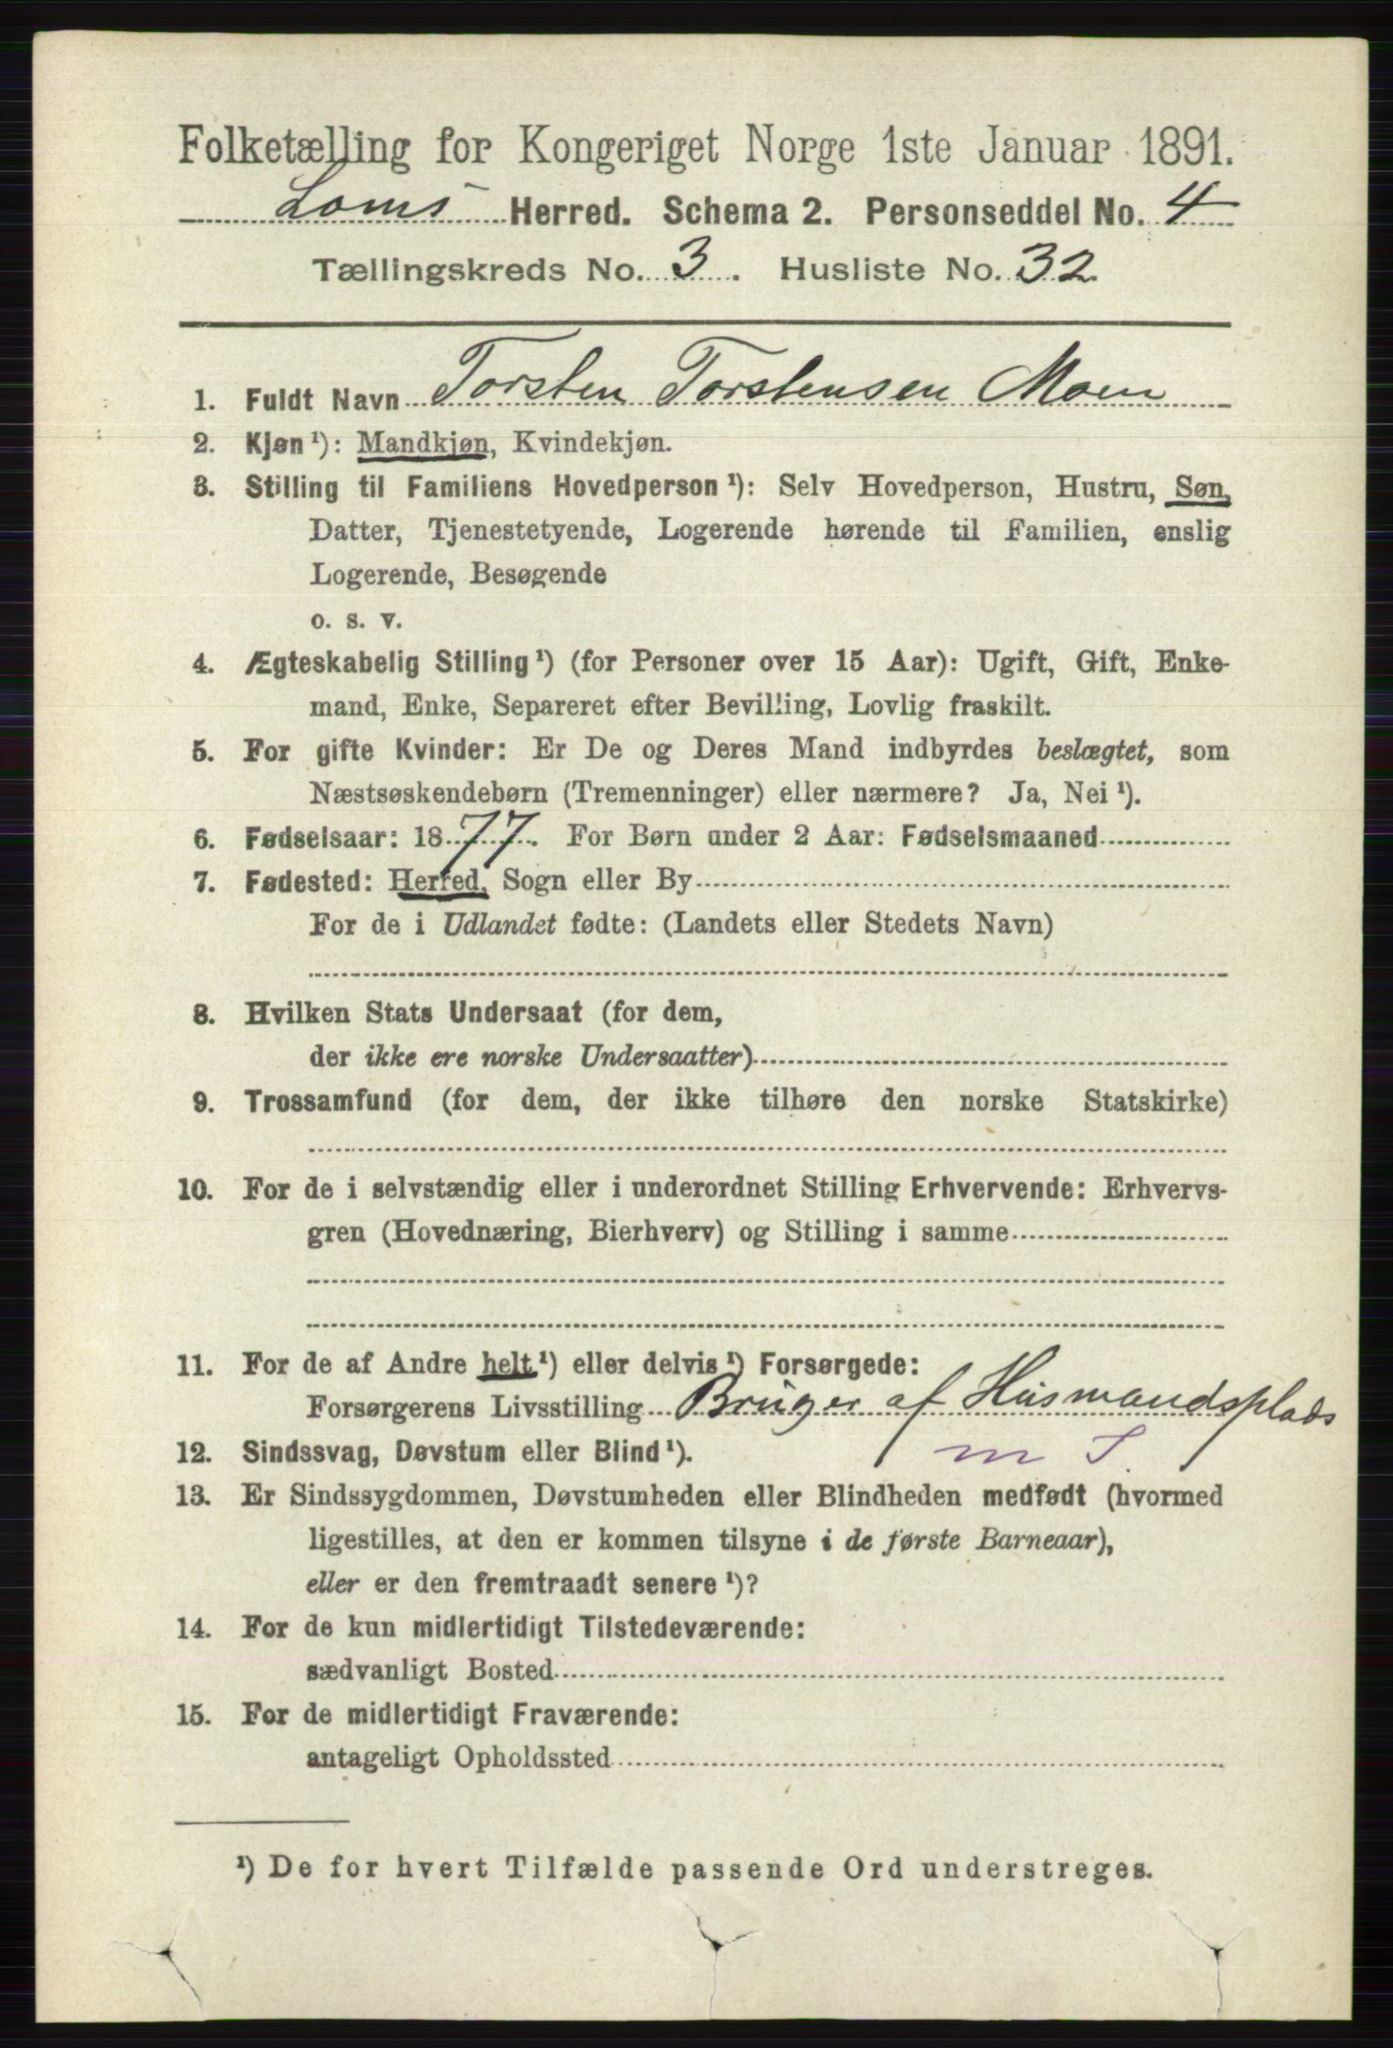 Folketælling for Kongeriget Norge 1ste Januar 1891.
Loms Herred. Schema 2. Personseddel No. 4
Tællingskreds No. 3. Husliste No. 32
1. Fuldt Navn Torsten Torstensen Moen
2. Kjøn¹): Mandkjøn, Kvindekjøn.
3. Stilling til Familiens Hovedperson¹): Selv Hovedperson, Hustru, Søn,
Datter, Tjenestetyende, Logerende hørende til Familien, enslig
Logerende, Besøgende
o. s. v.
4. Ægteskabelig Stilling¹) (for Personer over 15 Aar): Ugift, Gift, Enke-
mand, Enke, Separeret efter Bevilling, Lovlig fraskilt.
5. For gifte Kvinder: Er De og Deres Mand indbyrdes beslægtet, som
Næstsøskendebørn (Tremenninger) eller nærmere? Ja, Nei¹).
6. Fødselsaar: 1877. For Børn under 2 Aar: Fødselsmaaned
7. Fødested: Herred, Sogn eller By
For de i Udlandet fødte: (Landets eller Stedets Navn)
8. Hvilken Stats Undersaat (for dem,
der ikke ere norske Undersaatter)
9. Trossamfund (for dem, der ikke tilhøre den norske Statskirke)
10. For de i selvstændig eller i underordnet Stilling Erhvervende: Erhvervs-
gren (Hovednæring, Bierhverv) og Stilling i samme
11. For de af Andre helt¹) eller delvis¹) Forsørgede:
Forsørgerens Livsstilling Bruger af Husmandsplads
12. Sindssvag, Døvstum eller Blind¹). m S.
13. Er Sindssygdommen, Døvstumheden eller Blindheden medfødt (hvormed
ligestilles, at den er kommen tilsyne i de første Barneaar),
eller er den fremtraadt senere¹)?
14. For de kun midlertidigt Tilstedeværende:
sædvanligt Bosted
15. For de midlertidigt Fraværende:
antageligt Opholdssted
¹) De for hvert Tilfælde passende Ord understreges.